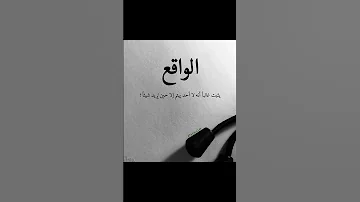 الواقع
يثبت غالباً أنه لا أحد يهتم إلا حين يريد شيئاً؟